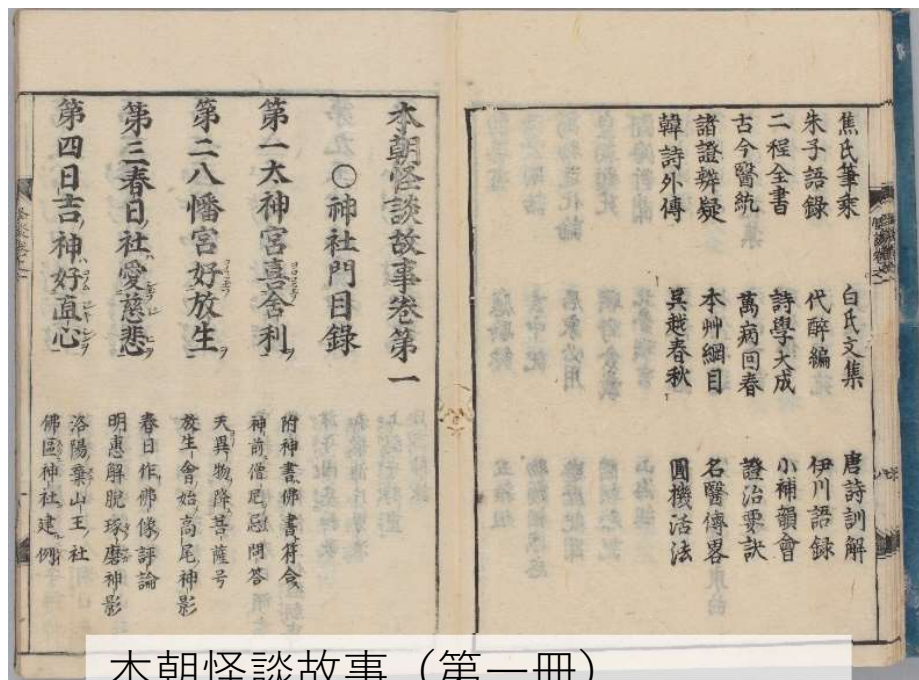 焦氏筆乘　白氏文集　唐詩訓解
朱子語錄　代醉編　伊川語録
二程全書　詩學大成　小補韻會
古今醫統　萬病回春　證治要訣
諸證辨疑　本艸綱目　名醫傳畧
韓詩外傳　呉越春秋　圓機活法
本朝怪談故事卷第一
○神社門目錄
第一太神宮喜舍利
附神書佛書符合
神前僧尼忌問答
第二八幡宮好放生
天異物降菩薩号
放生會始高尾神影
第三春日社愛慈悲
春日作佛像評論
明惠解脱琢磨神影
第四日吉神好直心
洛陽棄山王社
佛區神社建例
本朝怪談故事（第一冊）